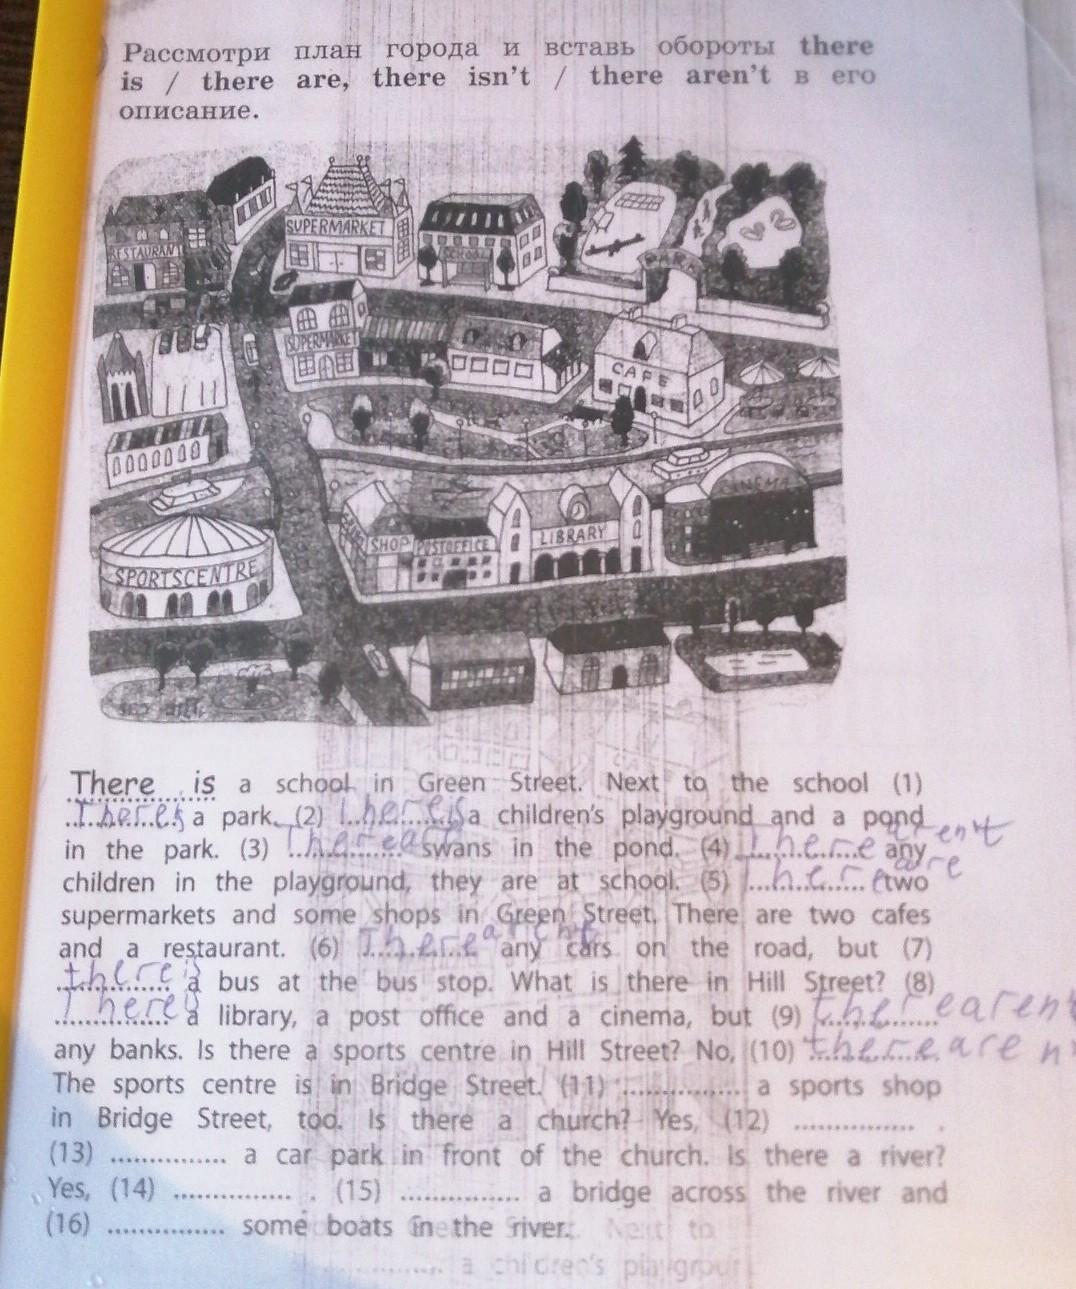 Рассмотри план города и вставь обороты there
is / there are, there isn't / there aren't в его
описание.
RESTAURANT
SUPERMARKET
SCHOOL
PARK
SUPERMARKET
CAFE
CINEMA
SHOP
POSTOFFICE
LIBRARY
SPORTSCENTRE
There is a school in Green Street. Next to the school (1)
There's a park. (2) There is a children's playground and a pond
in the park. (3) There are swans in the pond. (4) There aren't any
children in the playground, they are at school. (5) There are two
supermarkets and some shops in Green Street. There are two cafes
and a restaurant. (6) There arent any cars on the road, but (7)
there's a bus at the bus stop. What is there in Hill Street? (8)
There's a library, a post office and a cinema, but (9) there arent
any banks. Is there a sports centre in Hill Street? No, (10) there are n'
The sports centre is in Bridge Street. (11) ............... a sports shop
in Bridge Street, too. Is there a church? Yes, (12) ............... .
(13) ............... a car park in front of the church. Is there a river?
Yes, (14) ............... . (15) ............... a bridge across the river and
(16) ............... some boats in the river.
Next to
a children's playgrour